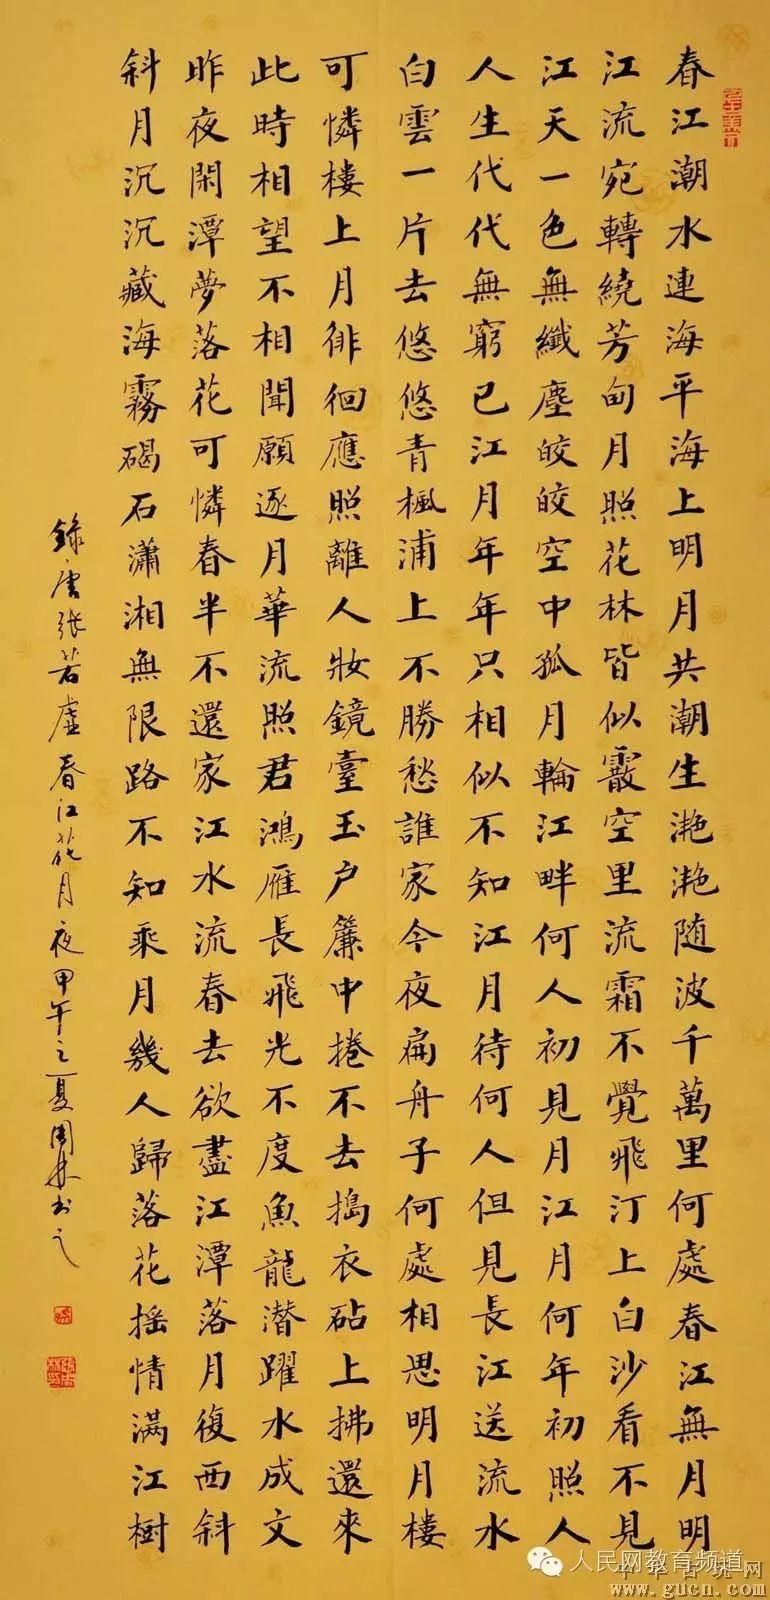 春江潮水連海平海上明月共潮生滟滟随波千萬里何處春江無月明
江流宛轉繞芳甸月照花林皆似霰空里流霜不覺飛汀上白沙看不見
江天一色無纖塵皎皎空中孤月輪江畔何人初見月江月何年初照人
人生代代無窮已江月年年只相似不知江月待何人但見長江送流水
白雲一片去悠悠青楓浦上不勝愁誰家今夜扁舟子何處相思明月樓
可憐樓上月徘徊應照離人妝鏡臺玉户簾中捲不去搗衣砧上拂還來
此時相望不相聞願逐月華流照君鴻雁長飛光不度魚龍潜躍水成文
昨夜閑潭夢落花可憐春半不還家江水流春去欲盡江潭落月復西斜
斜月沉沉藏海霧碣石瀟湘無限路不知乘月幾人歸落花摇情满江樹
錄唐張若虛春江花月夜甲午之夏周林书之
人民网教育频道
中华古玩网
www.gucn.com